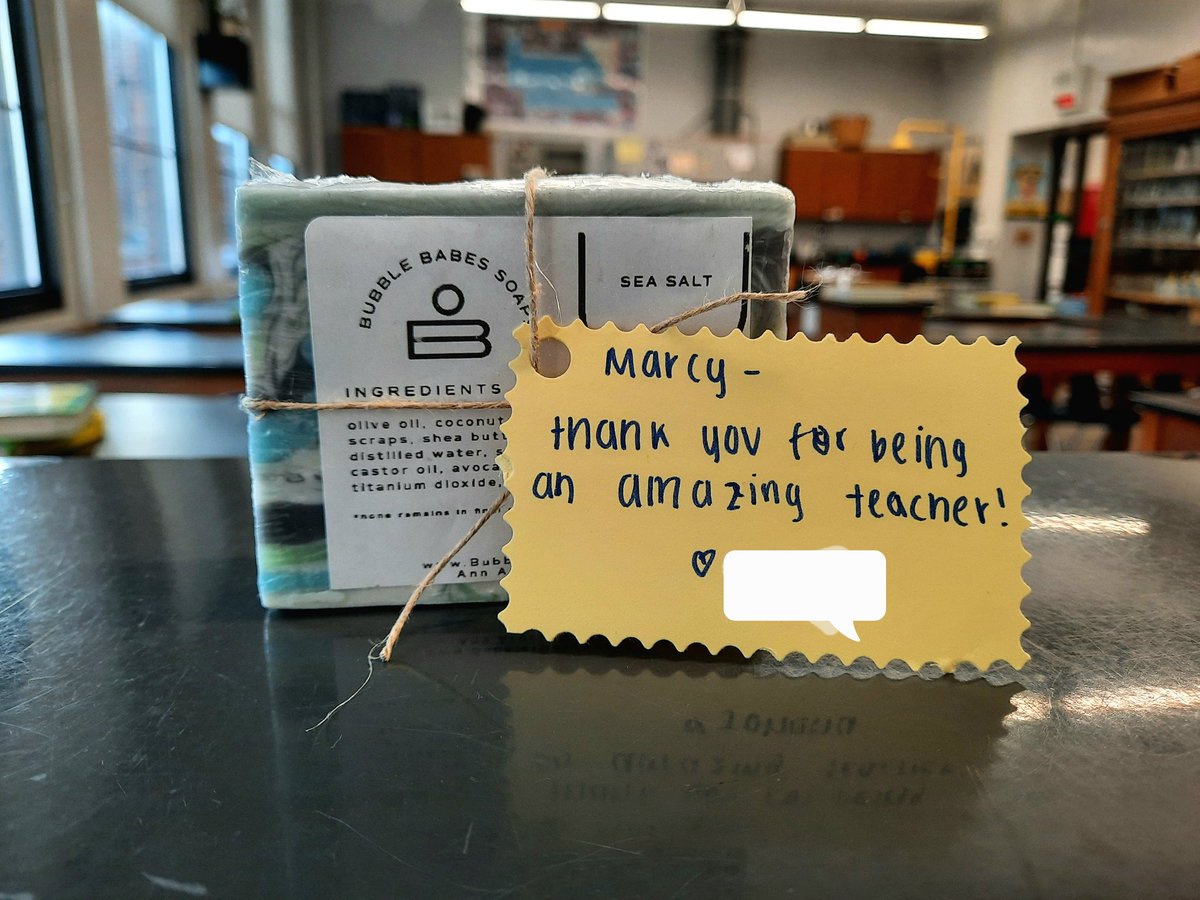 BUBBLE BABES SOAP
SEA SALT
INGREDIENTS
olive oil, coconut
scraps, shea
distilled water,
castor oil,
titanium dioxide,
*none remains in
Marcy-
thank you for being
an amazing teacher!